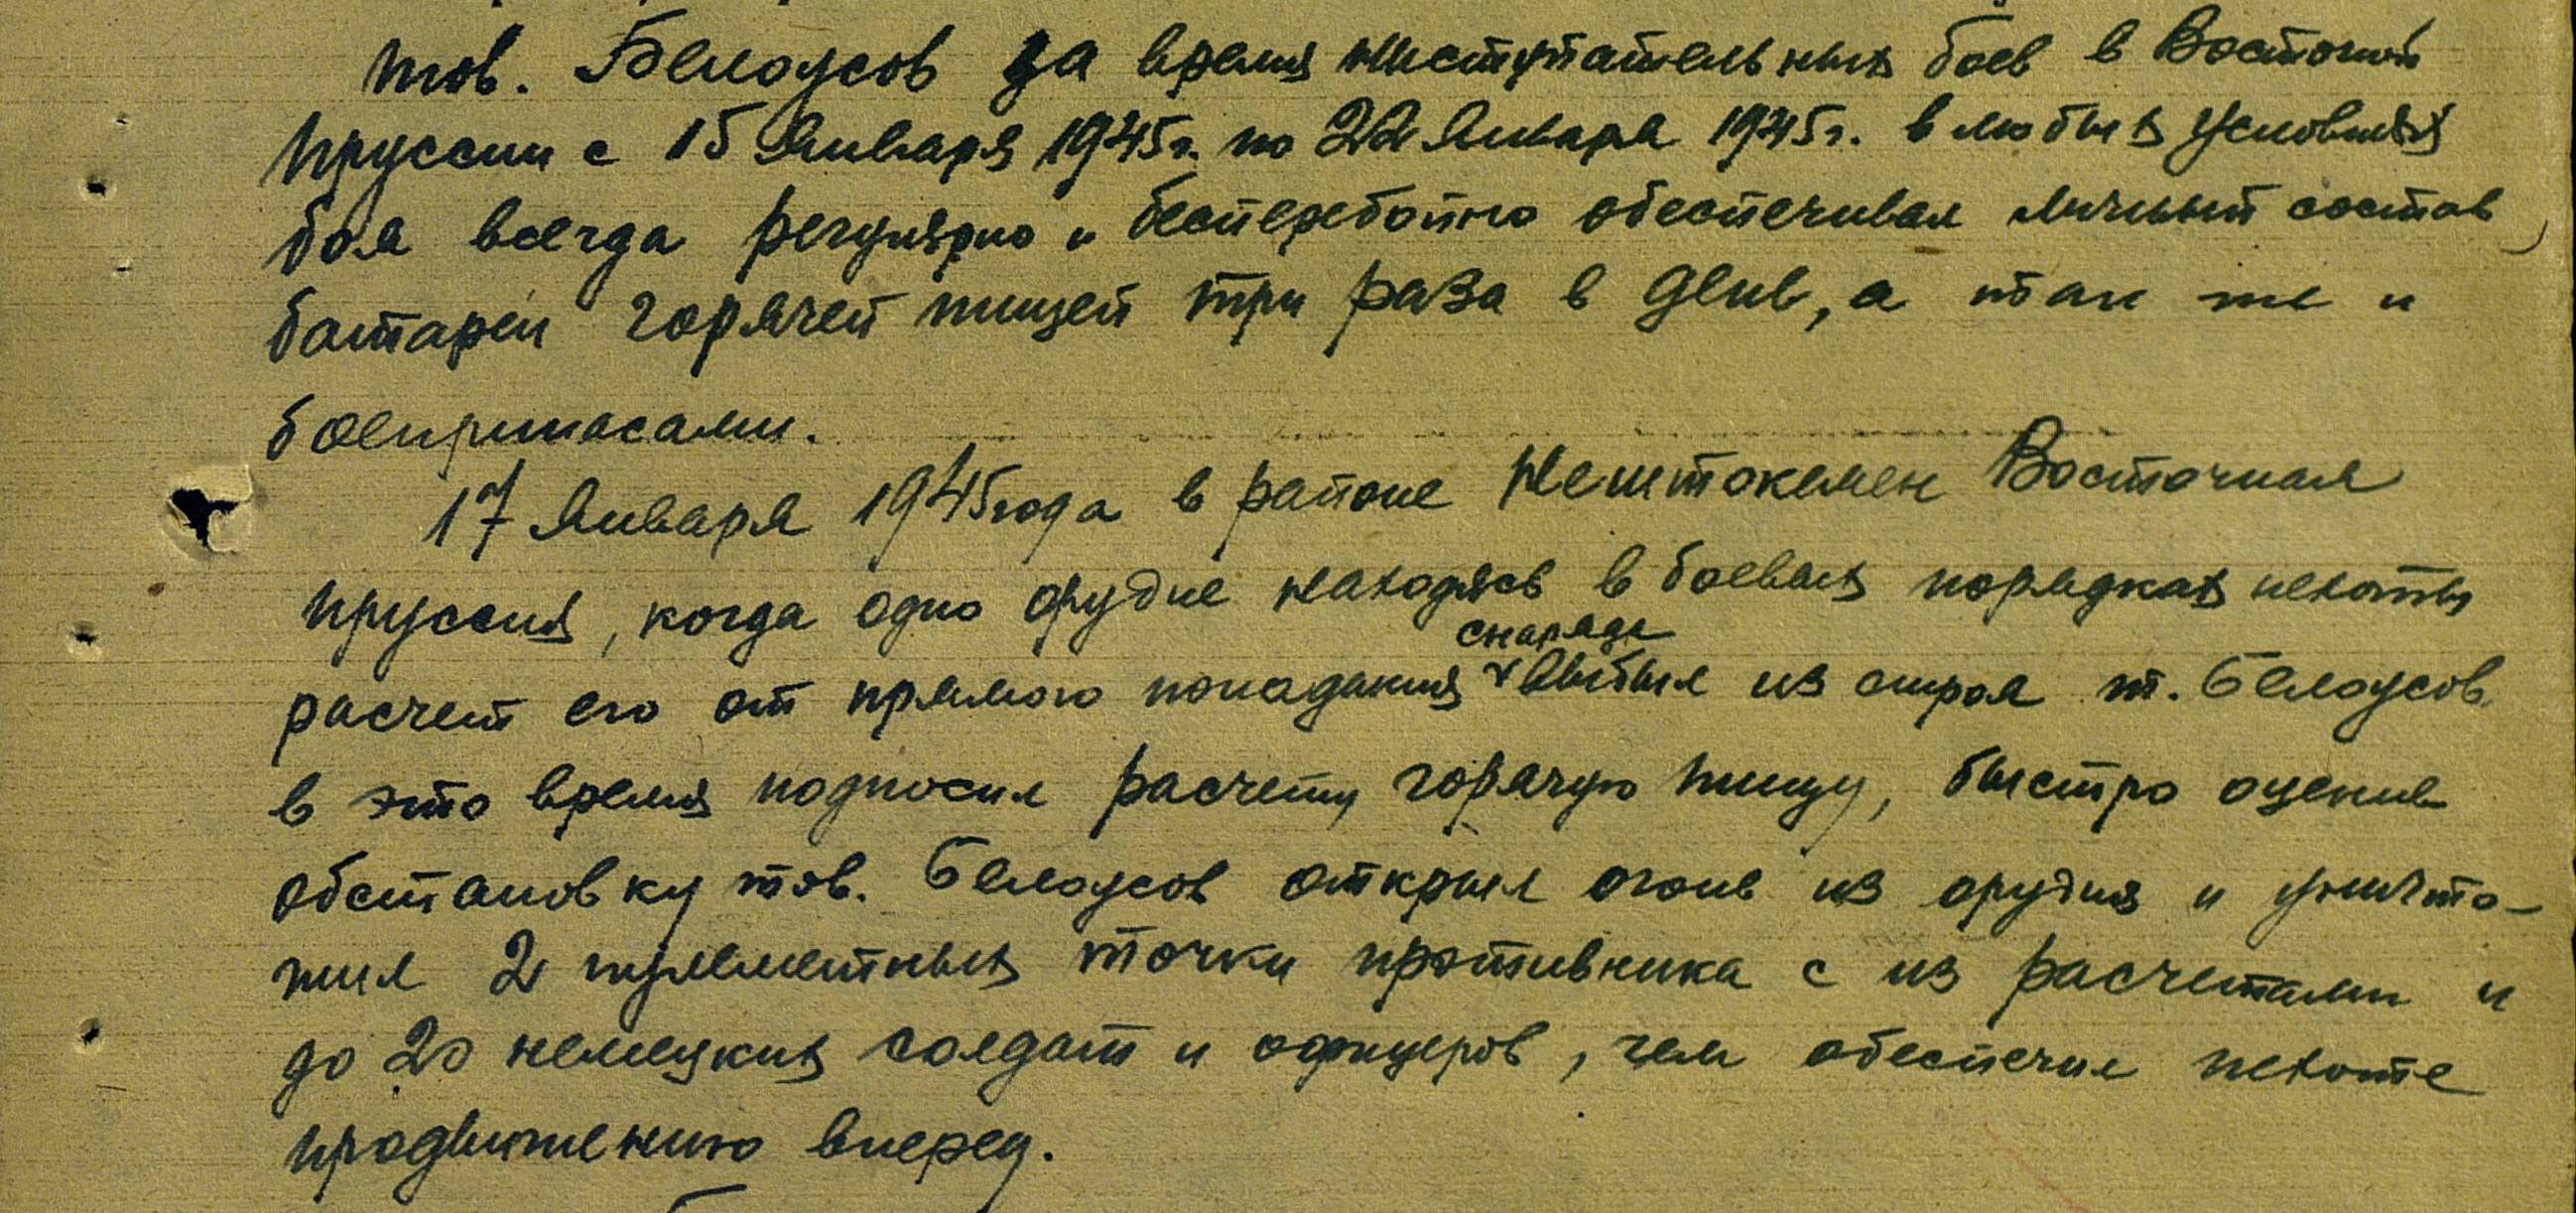 тов. Белоусов за время наступательных боев в Восточной
Пруссии с 15 Января 1945г. по 22 Января 1945г. в любых условиях
боя всегда регулярно и бесперебойно обеспечивал личный состав
батареи горячей пищей три раза в день, а так же и
боеприпасами.
17 Января 1945 года в районе Мештокемен Восточная
Пруссия, когда одно орудие находясь в боевых порядках пехоты
снаряда
расчет его от прямого попадания выбыл из строя т. Белоусов
в это время подносил расчету горячую пищу, быстро оценив
обстановку тов. Белоусов открыл огонь из орудия и уничто-
жил 2 пулеметных точки противника с их расчетами и
до 20 немецких солдат и офицеров, чем обеспечил пехоте
продвижению вперед.